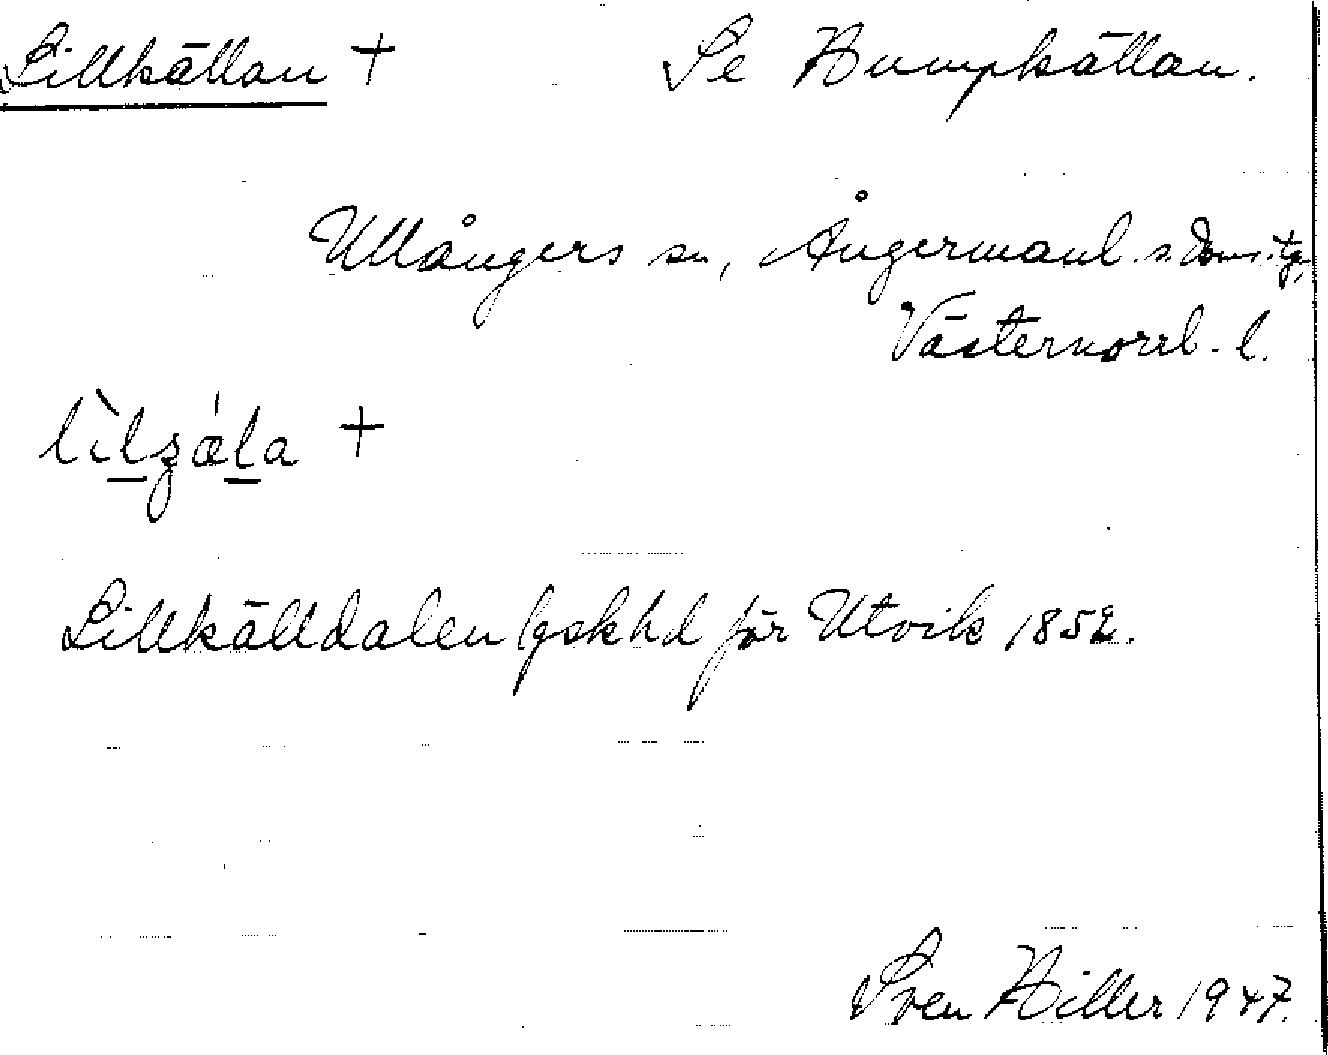 Lillkällan + Se Humpkällan.
Ullångers sn, Ångermanl. s. doms.tg,
Västernorrl. l.
lìlzǽla +
Lillkälldalen lgskhd för Utvik 1852.
Sven Hiller 1947.